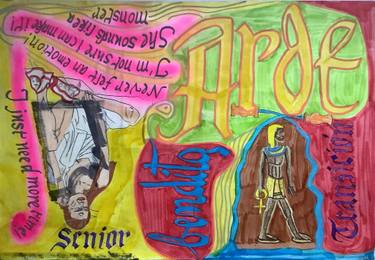 Arde
bendito
Transicion
Senior
I just need more time
Never felt an emotion!
I'm not sure I can make it!
She sounds like a
monster